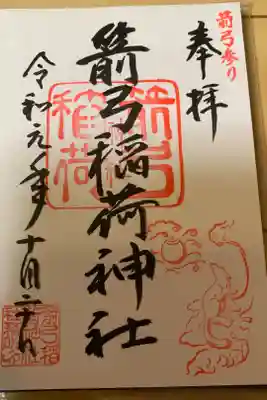 箭弓参り
奉拝
箭弓稲荷神社
箭弓
稲荷
令和元年十月二十日